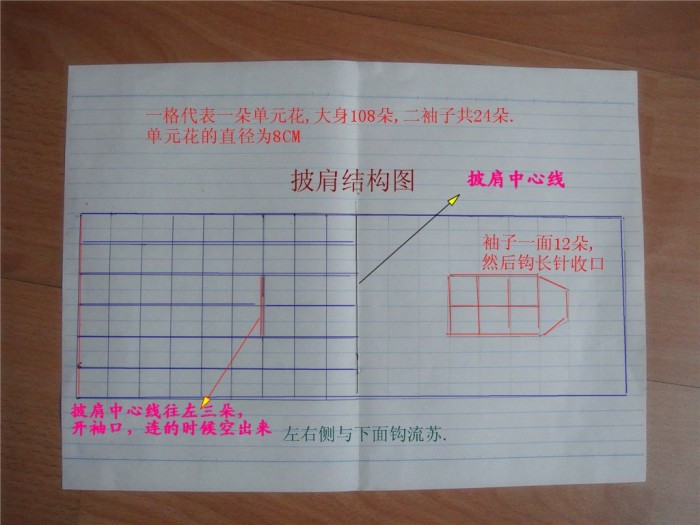 一格代表一朵单元花,大身108朵,二袖子共24朵.
单元花的直径为8CM
披肩结构图
披肩中心线
袖子一面12朵,
然后钩长针收口
披肩中心线往左三朵，
开袖口，连的时候空出来
左右侧与下面钩流苏.